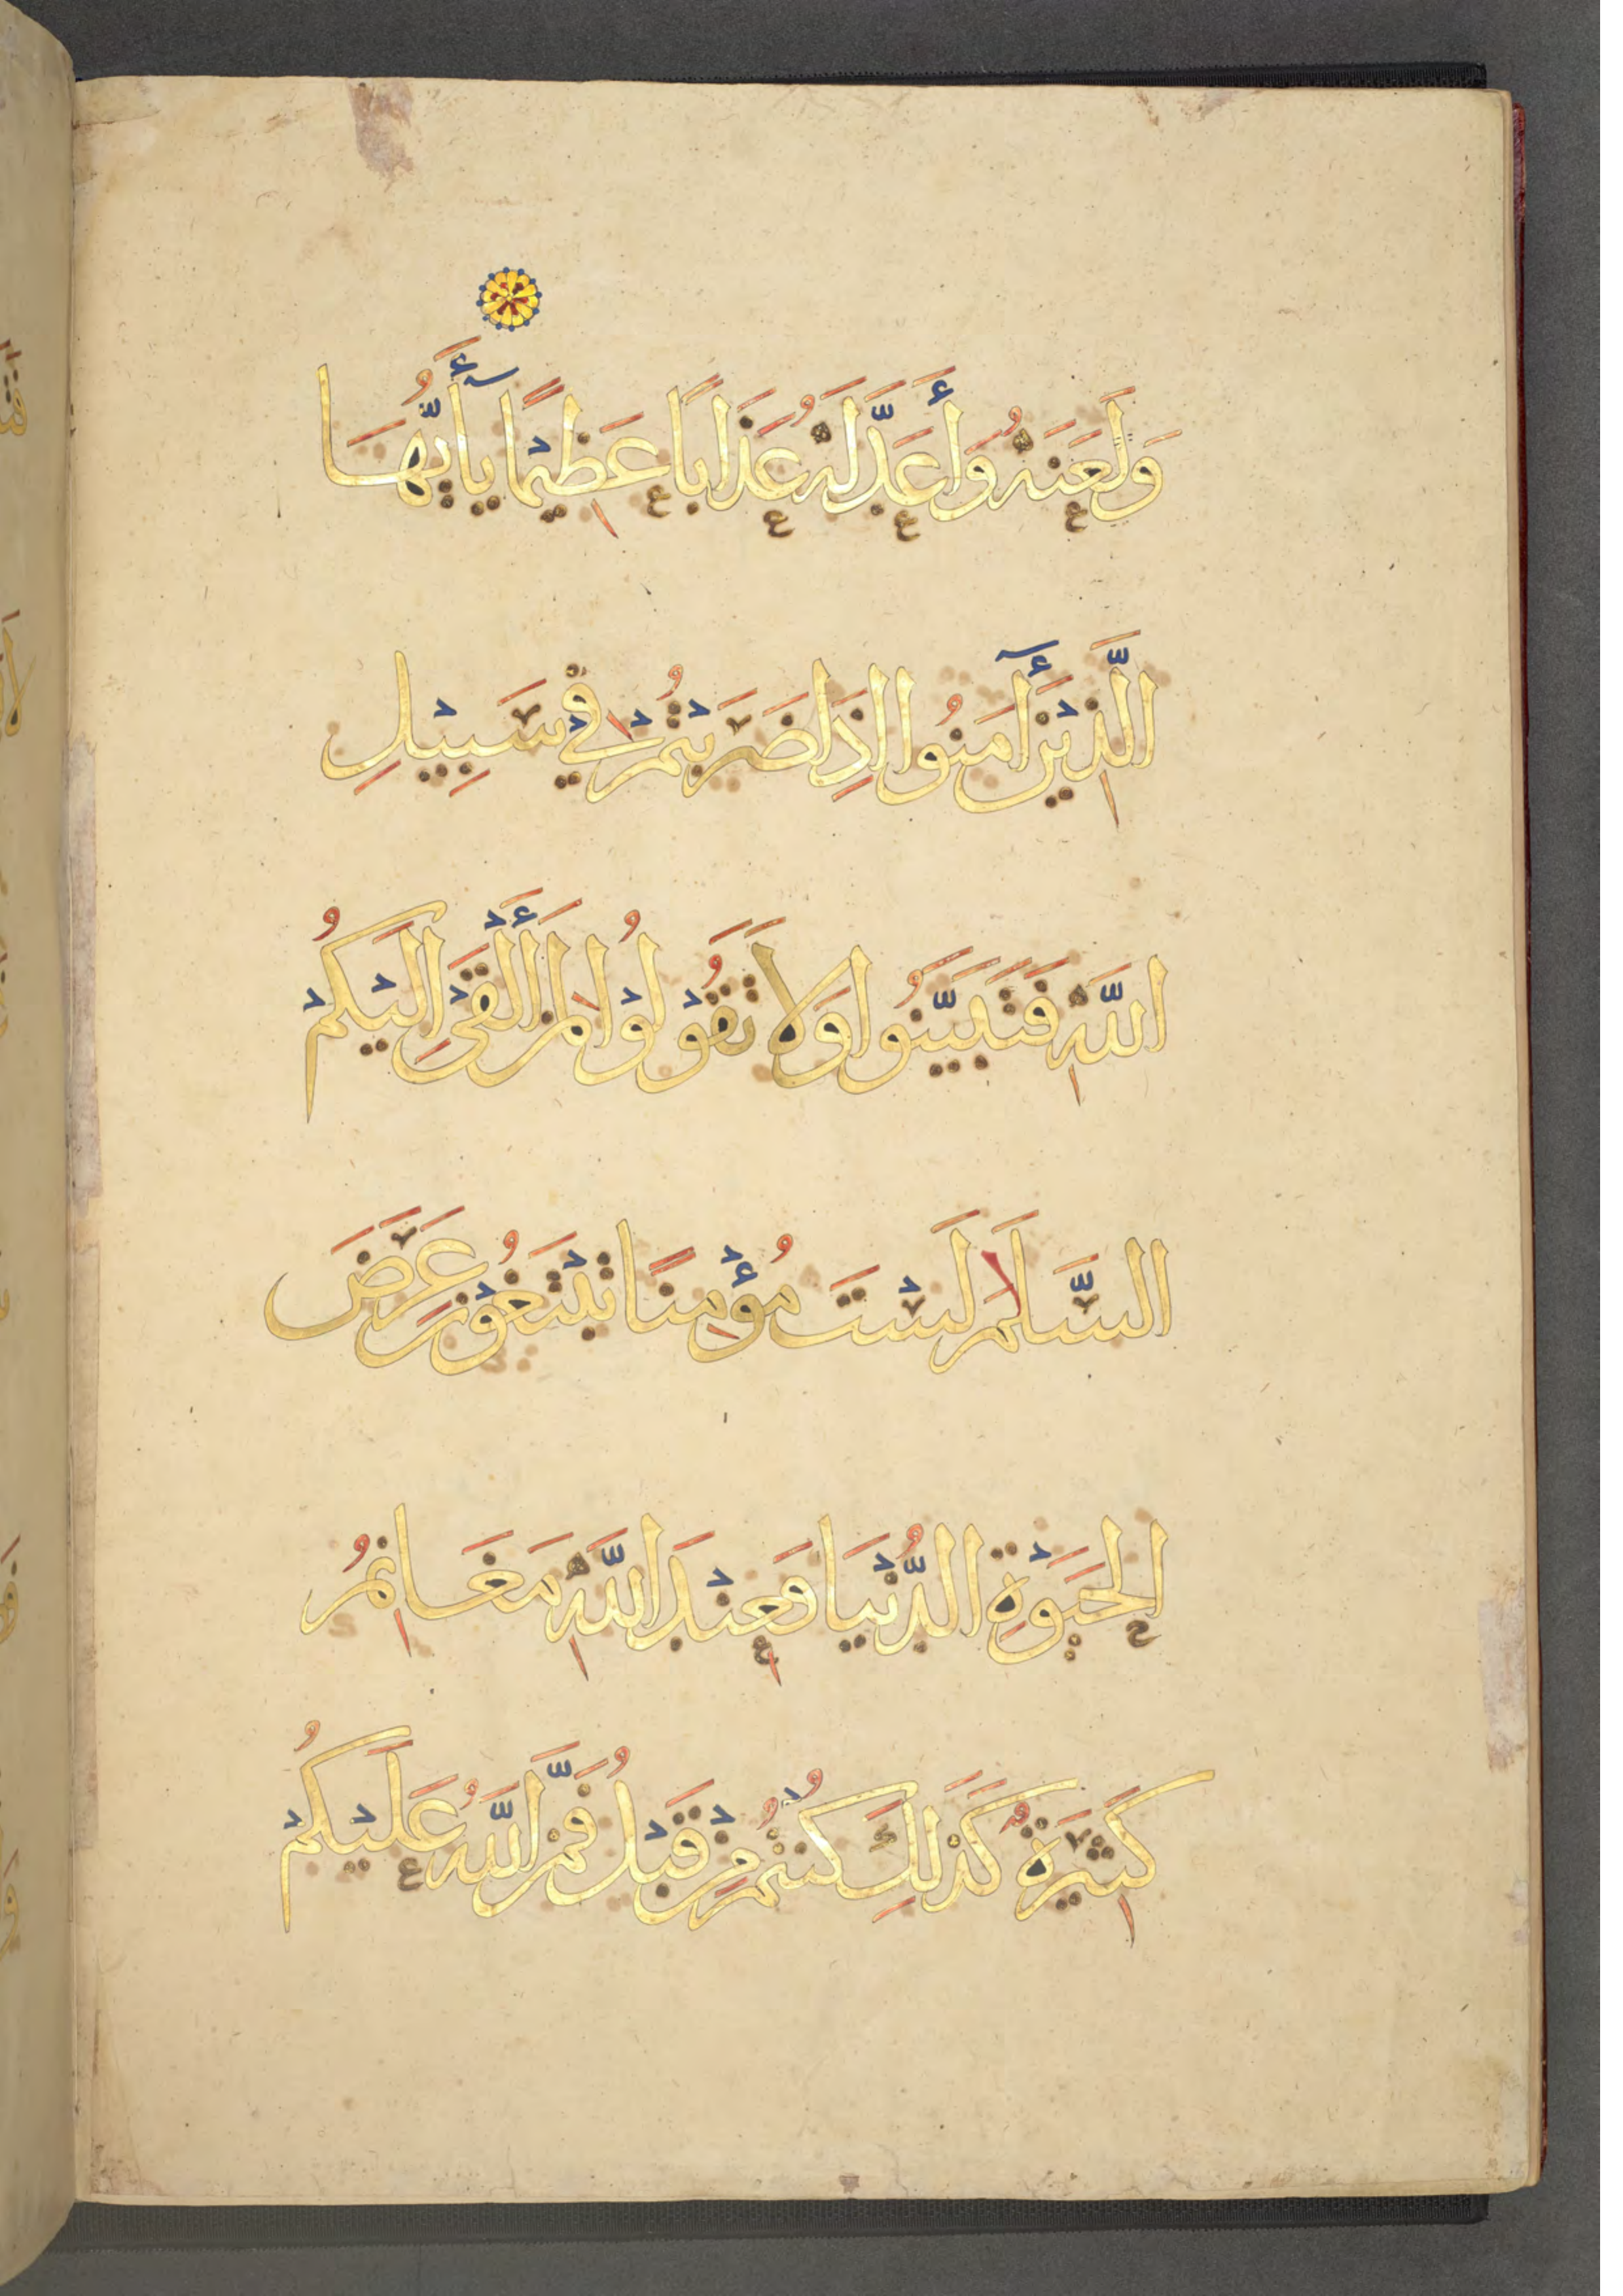 وَلَعَنَهُ وَأَعَدَّ لَهُ عَذَابًا عَظِيْمًا يَأَيُّهَا
الَّذِيْنَ أَمَنُوا اِذَا ضَرَبْتُمْ فِيْ سَبِيْلِ
اللَّهِ فَتَبَيَّنُوا وَلَا تَقُوْلُوْا لِمَنْ أَلْقَى اِلَيْكُمْ
السَّلَامَ لَسْتَ مُؤْمِنًا تَبْتَغُوْنَ عَرَضَ
الحَيَوةِ الدُّنْيَا فَعِنْدَ اللَّهِ مَغَانِمُ
كَثِيْرَةٌ كَذَلِكَ كُنْتُمْ مِنْ قَبْلُ فَمَنَّ اللَّهُ عَلَيْكُمْ